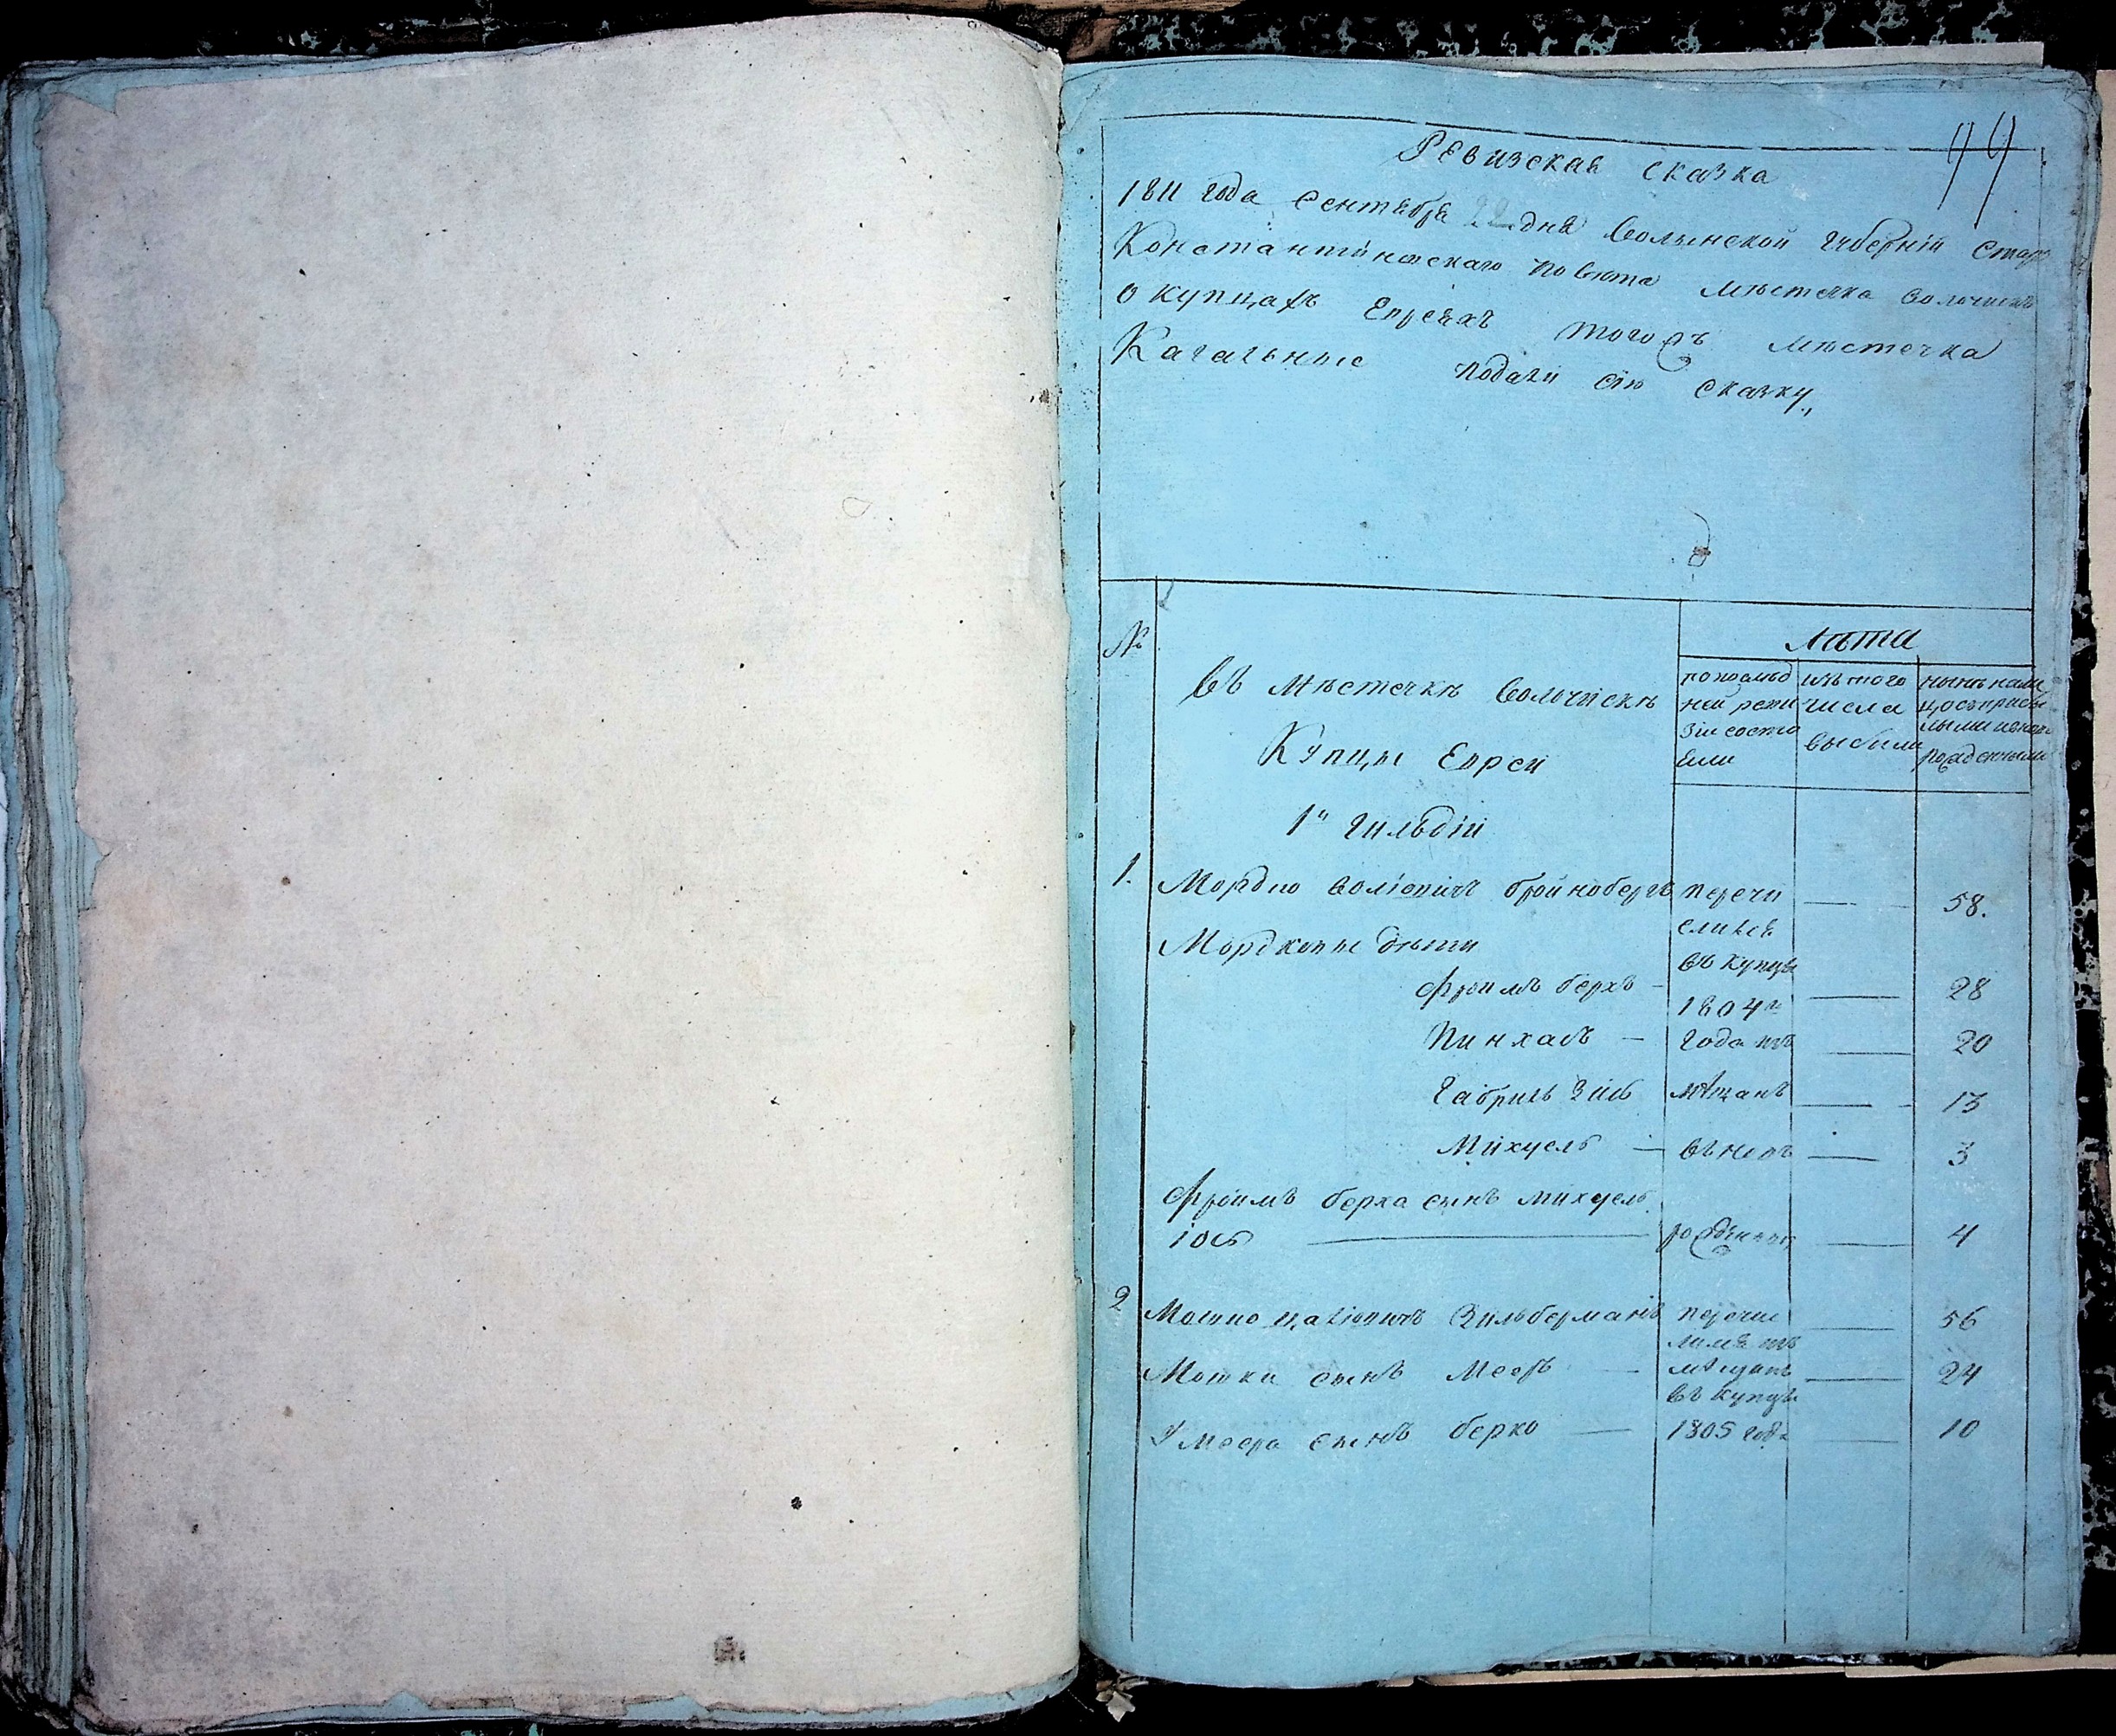 44
Ревизская сказка
1811 года Сентября 22 дня Волынской губерніи Старо
Константиновскаго повѣта мѣстечка Волочискъ
О купцахъ Евреяхъ тогожъ мѣстечка
Кагальные подали сію сказку,
№
лѣта
въ мѣстечкѣ Волочискѣ
Купцы Евреи
1й гильдіи
по послѣд
ней реви
зіи состо
яли
изъ того
числа
выбыли
нынѣ нали
цо съ прибы
лыми
1.
Мордко Волiовичъ Бройнобергъ
перечи
слился
въ купцы
1804го
года изъ
мѣщанъ
58.
Мордковы дѣти
Фроимъ Берхъ
28
Пинхасъ
20
Габриль Зись
13
Михуель
3
Фроимъ Берха сынъ Михуель
Іось
рожденный
4
2
Мошко Зильберманъ
перечис
мѣщанъ
въ купцы
1805 года
56
Мошки сынъ Меерь
24
У Меера сынъ Берко
10